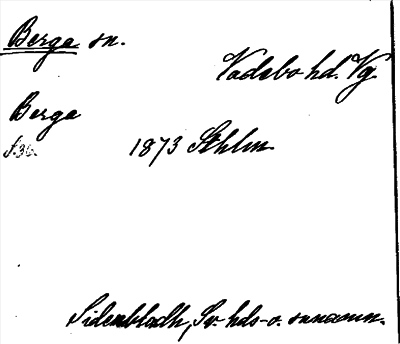 Berga sn.
Vadsbo hd. Vg.
Berga
s. 36.
1873 Sthlm
Sidenbladh, Sv. hds- o. snnamn.